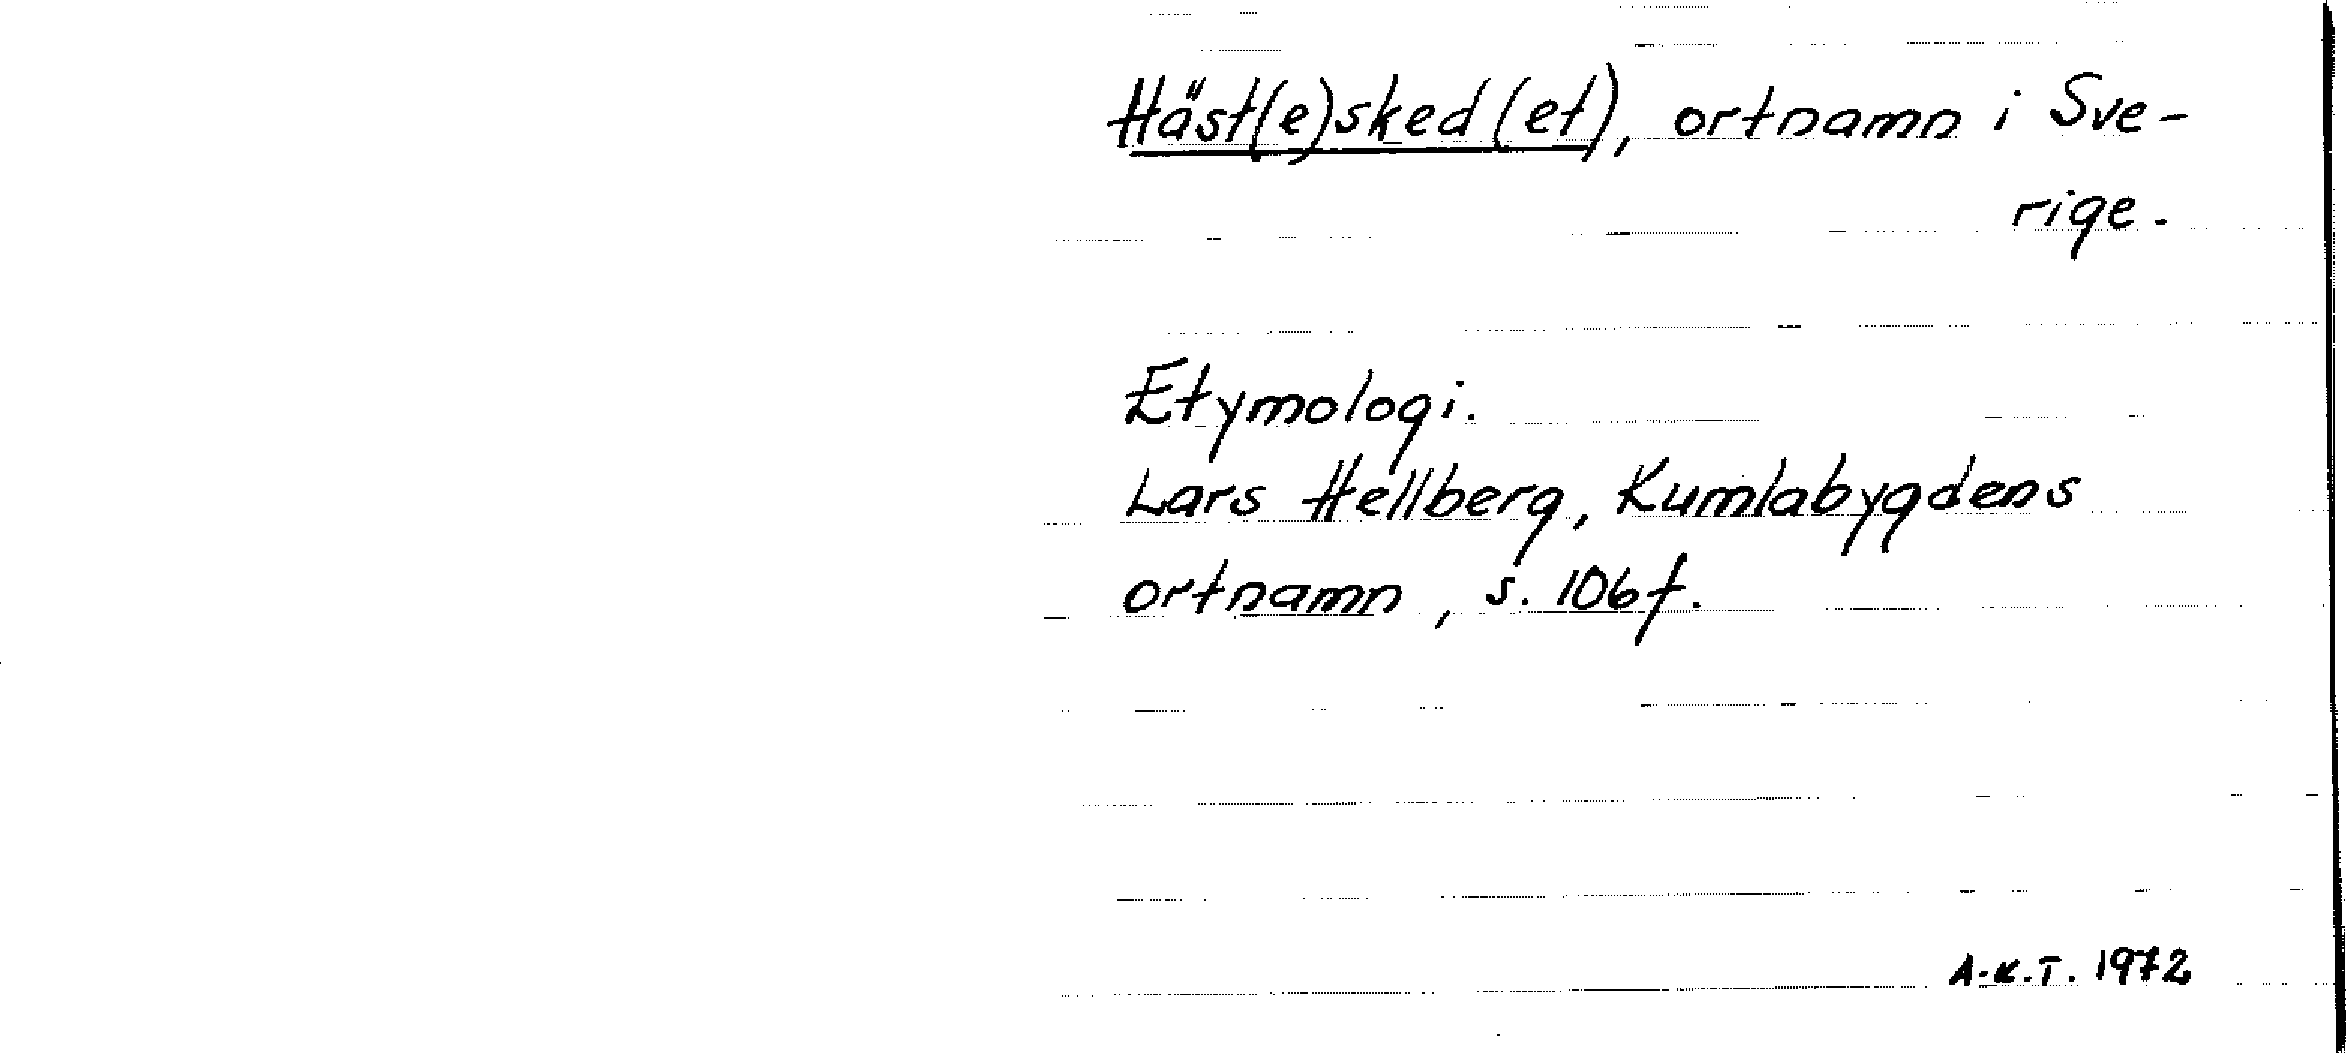 Häst(e)sked (et), ortnamn i Sve-
rige.
Etymologi.
Lars Hellberg, Kumlabygdens
ortnamn, s. 106 f.
A-K.T. 1972